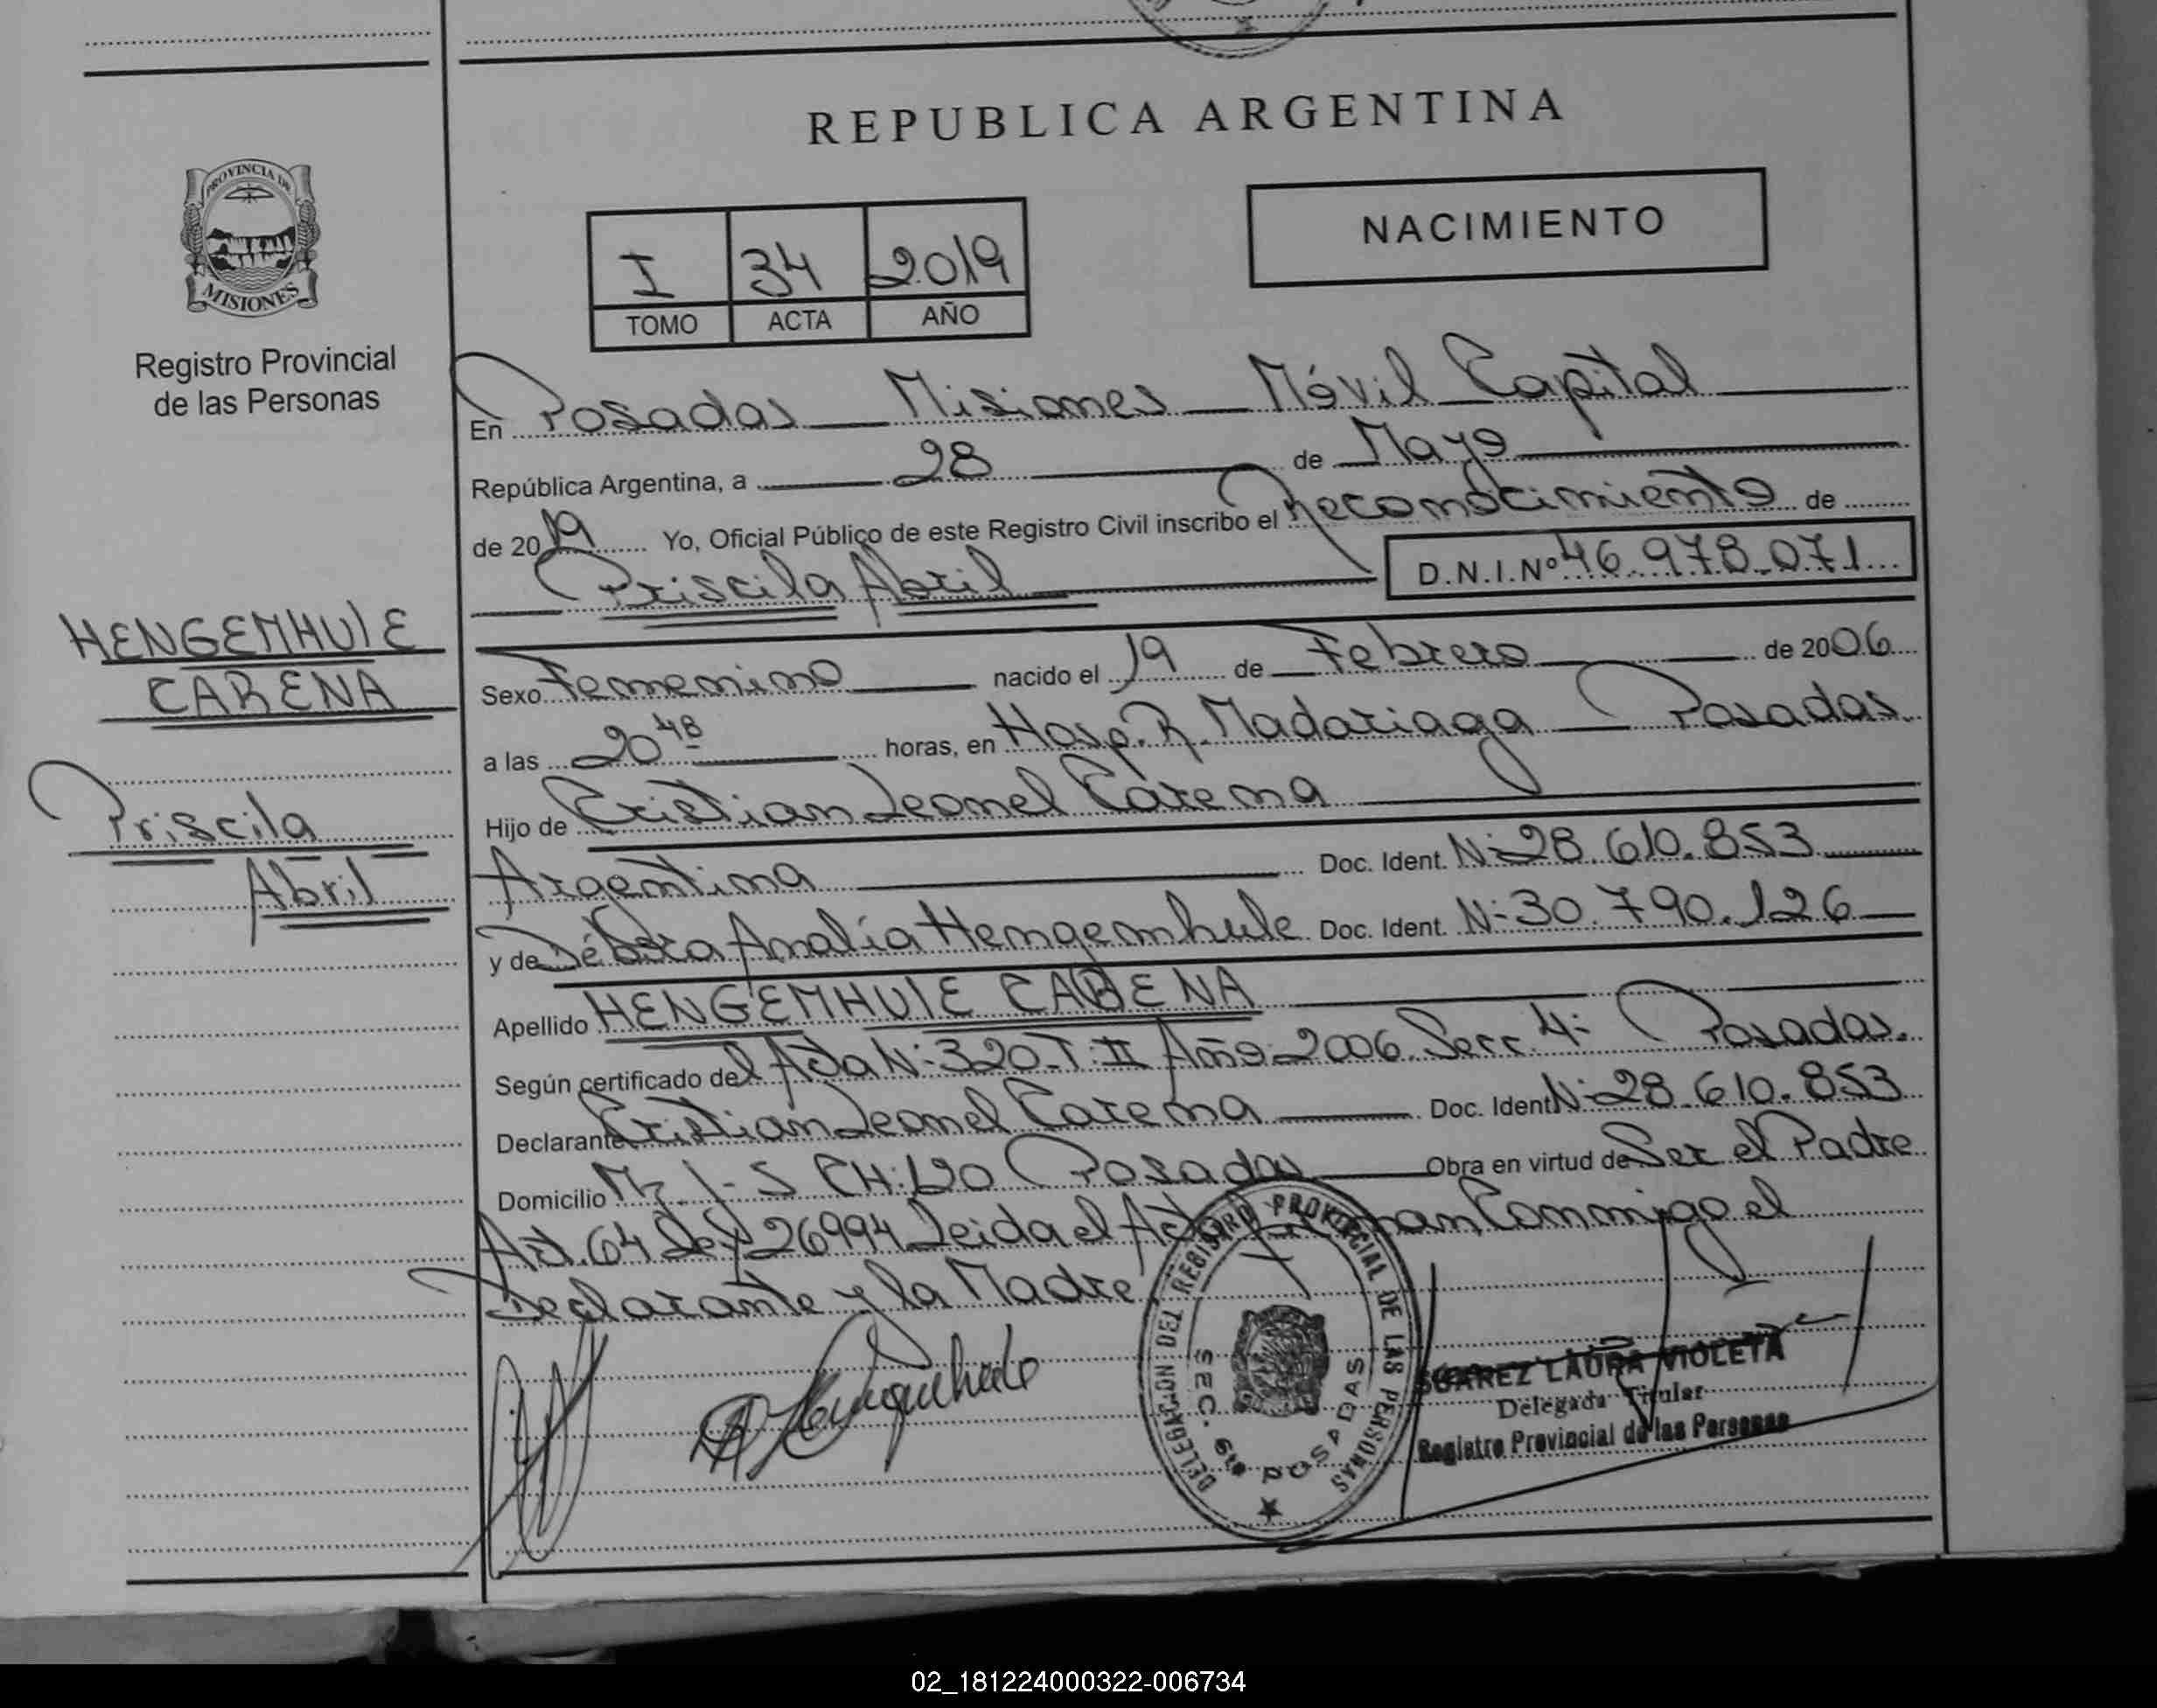 REPUBLICA ARGENTINA
PROVINCIA DE
MISIONES
Registro Provincial
de las Personas
NACIMIENTO
I 34 2019
TOMO ACTA AÑO
En Posadas Misiones Móvil Capital
República Argentina, a 28 de Mayo
de 2019 Yo, Oficial Público de este Registro Civil inscribo el Reconocimiento de
Priscila Abril D.N.I.Nº 46.978.071
HENGEMHULE
CARENA
Priscila
Abril
Sexo Femenino nacido el 19 de Febrero de 2006
a las 20 48 horas, en Hosp. R. Madariaga Posadas
Hijo de Cristian Leonel Carena
Argentina Doc. Ident. Nº 28.610.853
y de Débora Analía Hengemhule Doc. Ident. Nº 30.790.126
Apellido HENGEMHULE CARENA
Según certificado del Acta Nº 320 T: II Año 2006 Secc 4º Posadas.
Declarante Cristian Leonel Carena Doc. Ident Nº 28.610.853
Domicilio Mz. I-S CH: 120 Posadas Obra en virtud de Ser el Padre
Art. 64 Ley 26994 Leida el Acta Firman Conmigo el
Declarante y la Madre
DELEGACION DEL REGISTRO PROVINCIAL DE LAS PERSONAS
SEC. 6ta POSADAS
SUAREZ LAURA VIOLETA
Delegada Titular
Registro Provincial de las Personas
02_181224000322-006734